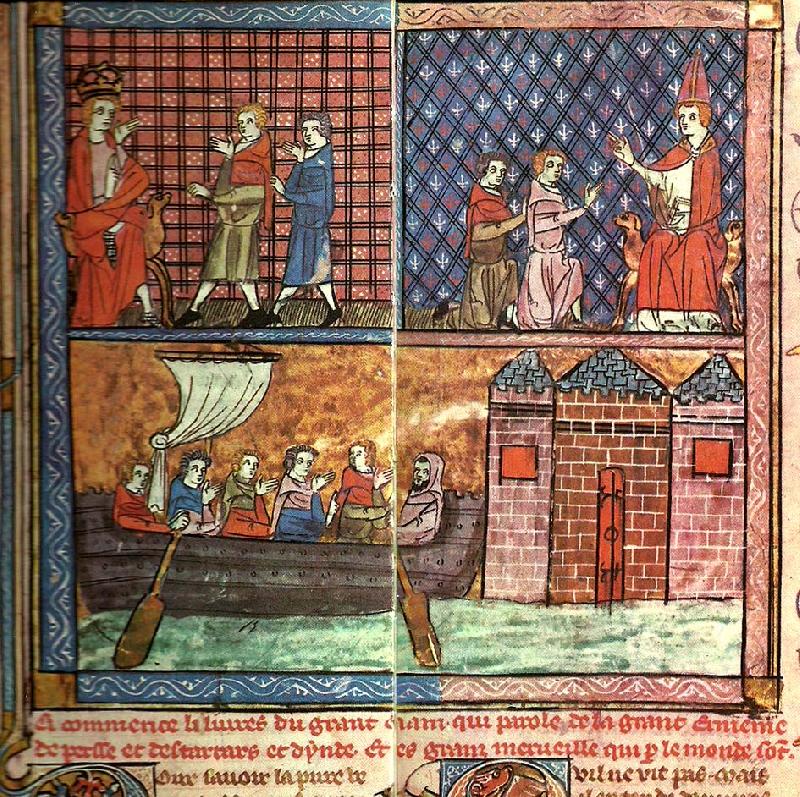 Ci commence li liures du graunt caam qui parole de la graunt ermenie
de persse et des tartars et dynde. Et des granz merueille qui p le monde sōt.
Our sauoir la pure ve
vil ne vit pas mais